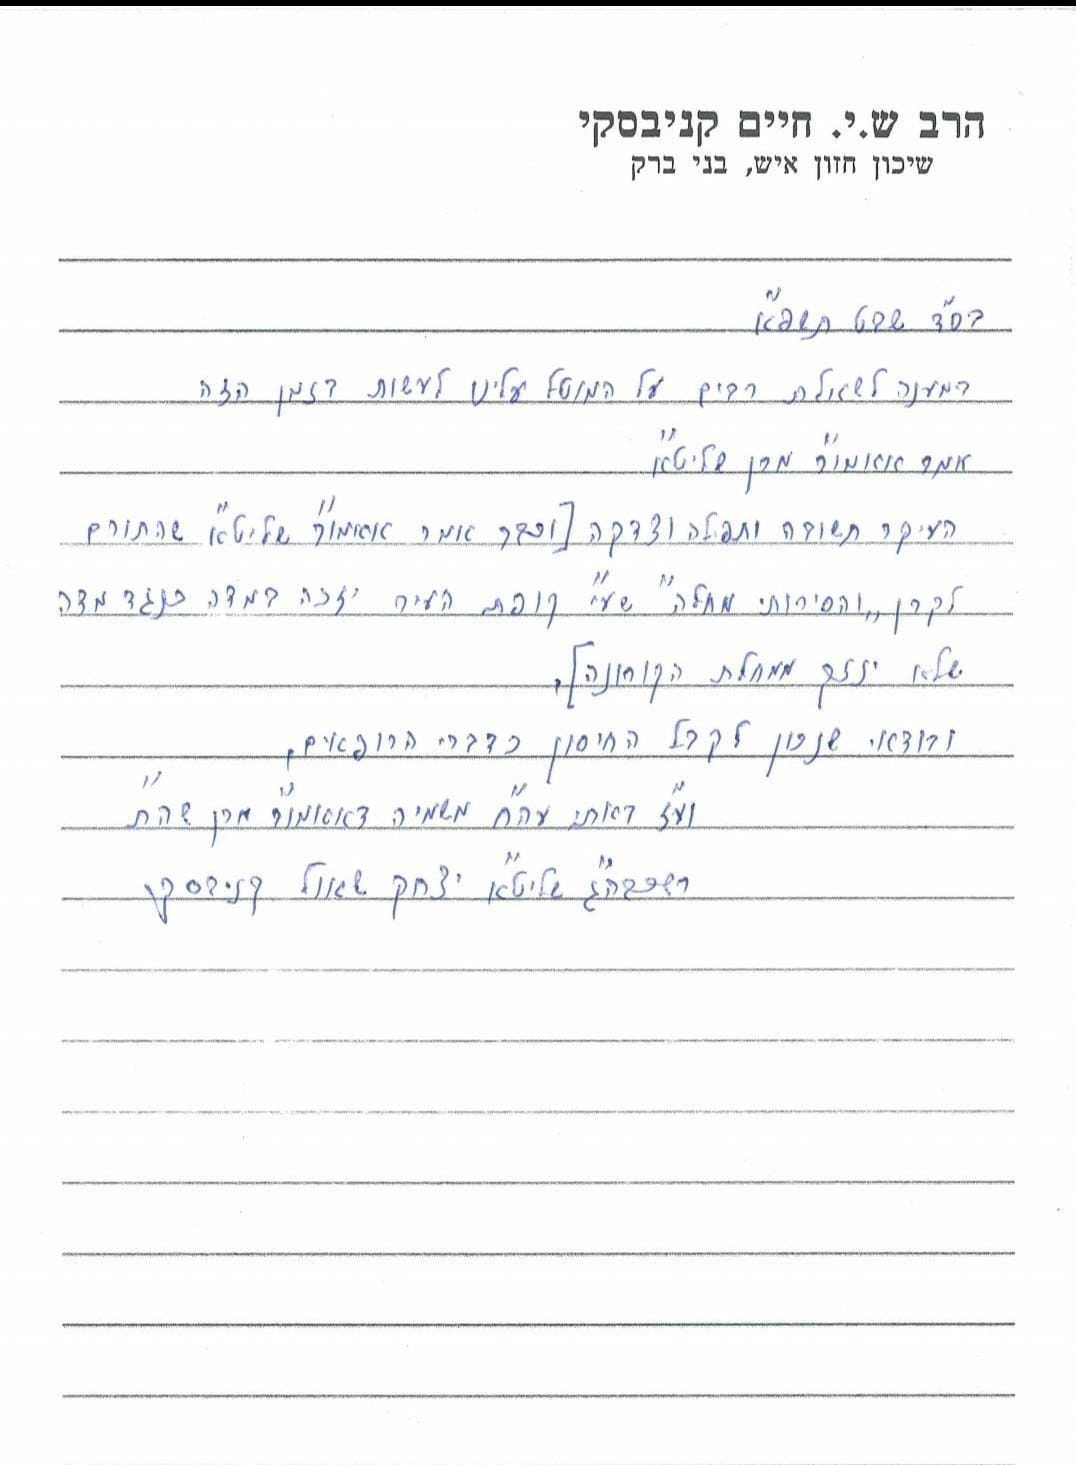 הרב ש.י. חיים קניבסקי
שיכון חזון איש, בני ברק
בס"ד שבט תשפ"א
במענה לשאלת רבים על המוטל עלינו לעשות בזמן הזה
אמר אאמו"ר מרן שליט"א
העיקר תשובה ותפילה וצדקה [וכבר אומר אאמו"ר שליט"א שהתורם
לקרן "והסירותי מחלה" שע"י קופת העיר יזכה במדה כנגד מדה
שלא ינזק ממחלת הקורונה].
ובודאי שנכון לקבל החיסון כדברי הרופאים.
וע"ז באתי עה"ח משמיה דאאמו"ר מרן שה"ת
רשכבה"ג שליט"א יצחק שאול קניבסקי